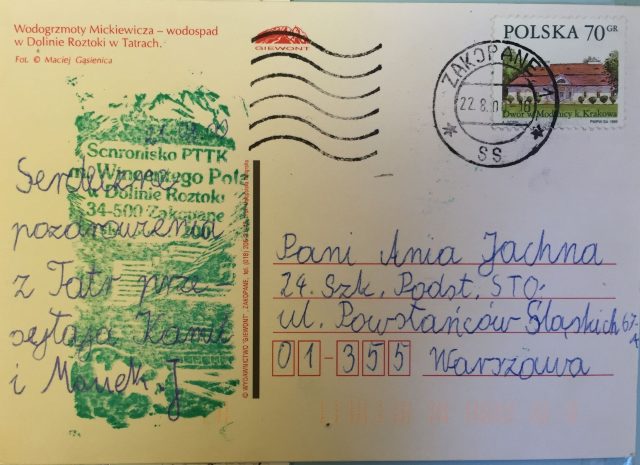 Wodogrzmoty Mickiewicza – wodospad
w Dolinie Roztoki w Tatrach.
Fot. © Maciej Gąsienica
GIEWONT
POLSKA 70 GR
Dwór w Modlnicy k. Krakowa
ZAKOPANE 1
22.8.0
SS
Schronisko PTTK
Wincentego Pola
w Dolinie Roztoki
34-500 Zakopane
Serdeczne
pozdrowienia
z Tatr prze-
syłają Kamil
i Maciek.J
© WYDAWNICTWO "GIEWONT", ZAKOPANE, tel. (018)
Pani Ania Jachna
24. Szk. Podst. STO.
ul. Powstańców Śląskich 67-A
01-355 Warszawa